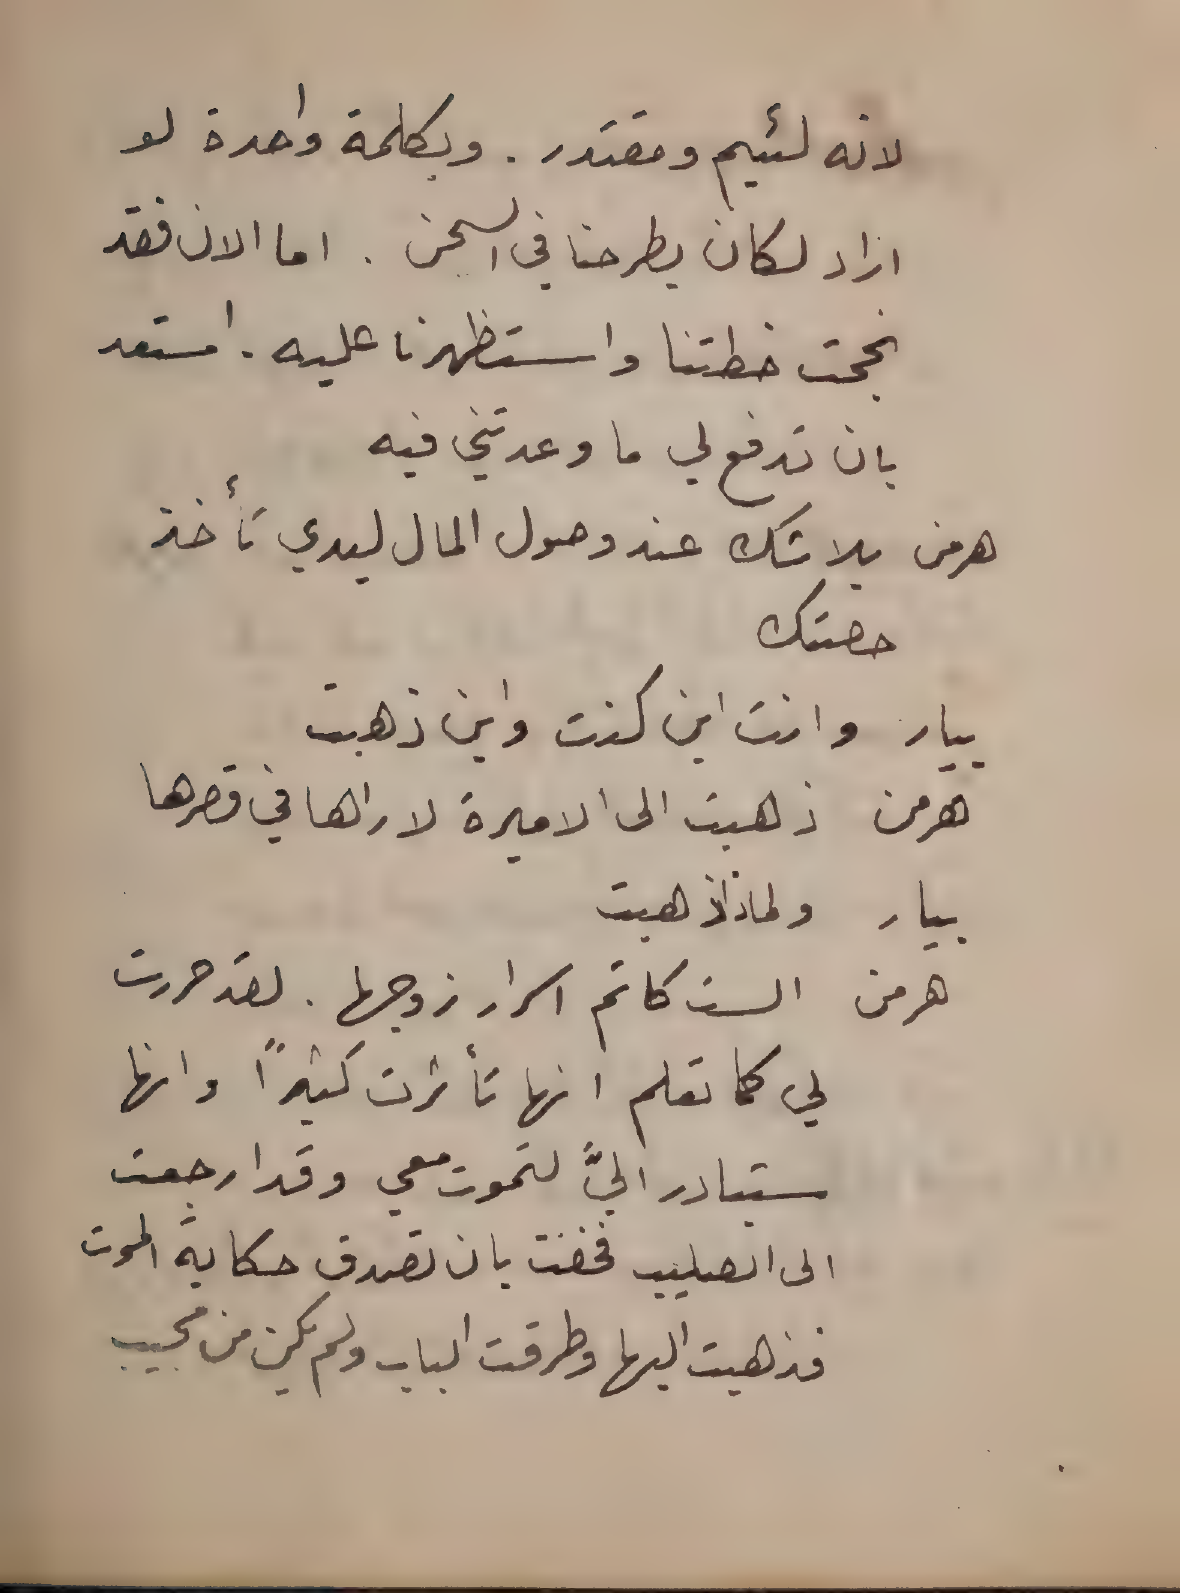 لانه لئيم ومقتدر . وبكلمة واحدة لو
اراد لكان يطرحنا في السجن . اما الان فقد
نجحت خطتنا واستظهرنا عليه . استعد
بان تدفع لي ما وعدتني فيه
هرمن بلا شك عند وصول المال ليدي تأخذ
حصتك
بيار وانت اين كنت واين ذهبت
هرمن ذهبت الى الاميرة لاراها في قصرها
بيار ولماذا ذهبت
هرمن الست كاتم اسرار زوجها . لقد حررت
لي كما تعلم انها تأثرت كثيرًا وانها
ستبادر اليَّ لتموت معي وقد ارجعت
الى الصليب فخفت بان تصدق حكاية الموت
فذهبت اليها وطرقت الباب ولم يكن من مجيب